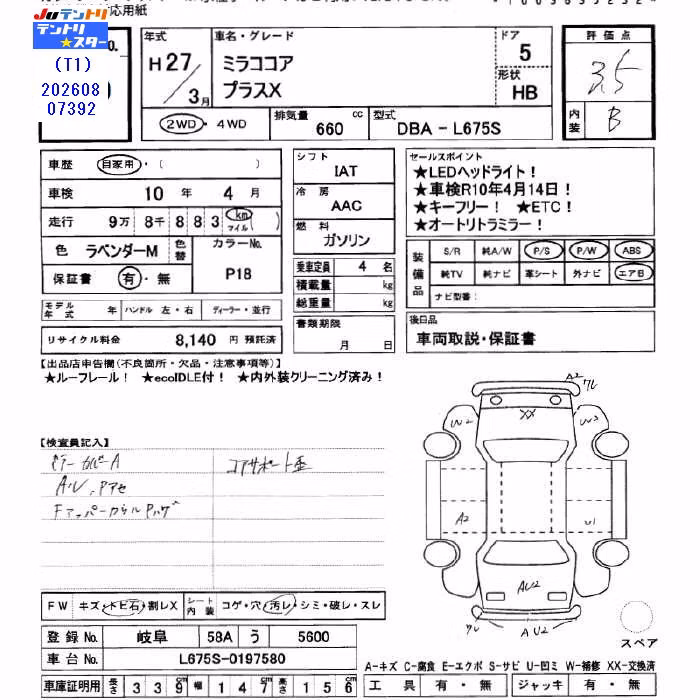 JUテントリ
テントリ
★スター
(T1)
202608
07392
応用紙
年式
H27/3月
車名・グレード
ミラココア
プラスX
ドア
5
形状
HB
評価点
3.5
内装
B
2WD・4WD
排気量
660 cc
型式
DBA - L675S
車歴 自家用・( )
車検 10 年 4 月
走行 9万 8千 8 8 3 km マイル
色 ラベンダーM 色替 カラーNo.
保証書 有・無 P18
モデル年式 年 ハンドル 左・右 ディーラー・並行
リサイクル料金 8,140 円 預託済
シフト
IAT
冷房
AAC
燃料
ガソリン
乗車定員 4 名
積載量 kg
総重量 kg
書類期限
月 日
セールスポイント
★LEDヘッドライト!
★車検R10年4月14日!
★キーフリー! ★ETC!
★オートリトラミラー!
装備品
S/R 純A/W P/S P/W ABS
純TV 純ナビ 革シート 外ナビ エアB
ナビ型番:
後日品
車両取説・保証書
【出品店申告欄(不良箇所・欠品・注意事項等)】
★ルーフレール! ★ecoIDLE付! ★内外装クリーニング済み!
【検査員記入】
コアサポート歪
A2
XX
W2
A2
U1
AU2
AU2
FW キズ・トビ石・割レX シート内装 コゲ・穴・汚レ・シミ・破レ・スレ
登録No. 岐阜 58A う 5600
車台No. L675S-0197580
車庫証明用 長さ 3 3 9 cm 幅 1 4 7 cm 高さ 1 5 6 cm
スペア
A-キズ C-腐食 E-エクボ S-サビ U-凹ミ W-補修 XX-交換済
工具 有・無 ジャッキ 有・無